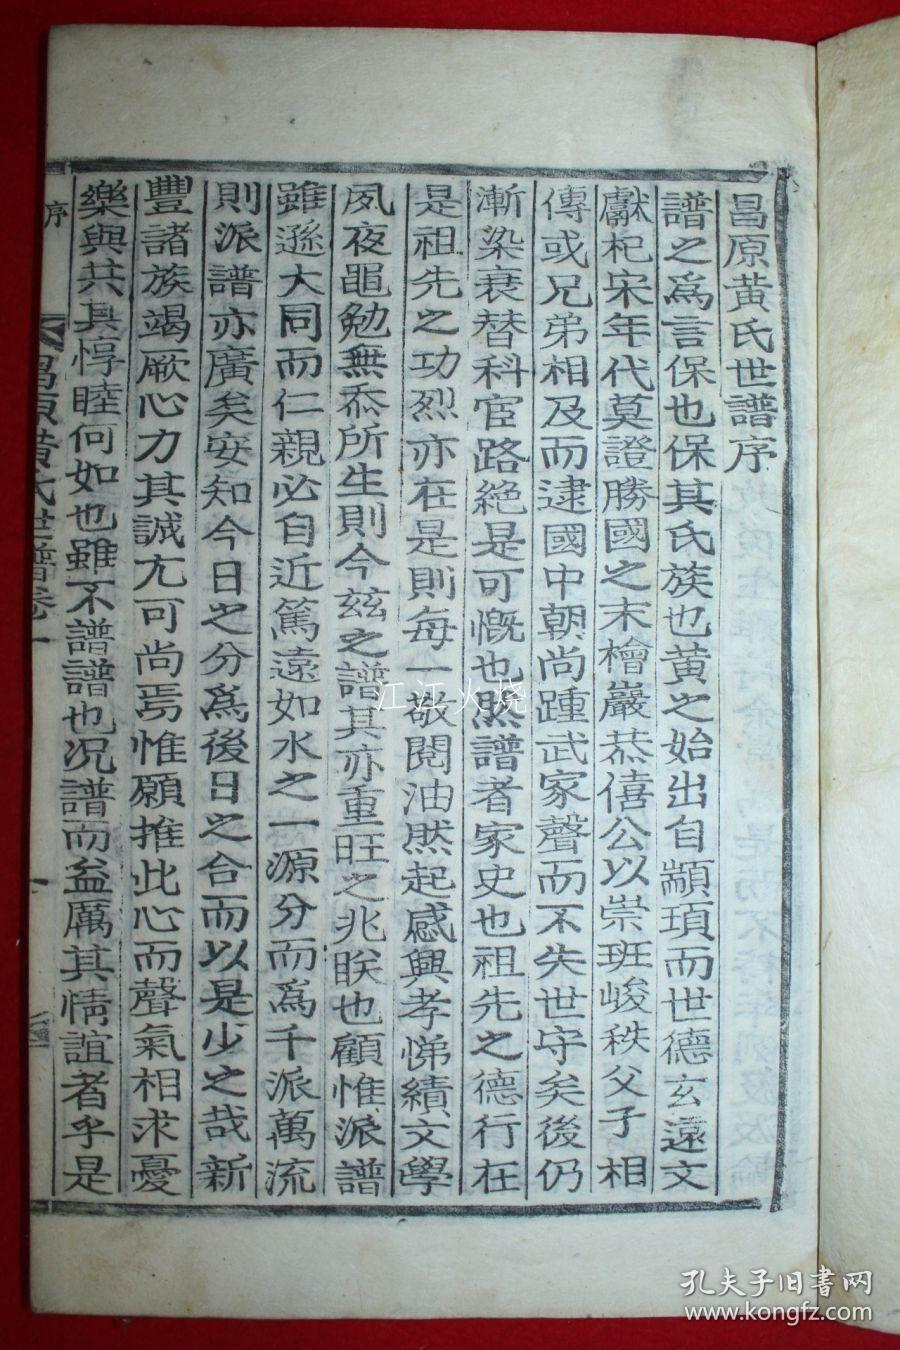 昌原黃氏世譜序
譜之爲言保也保其氏族也黃之始出自顓頊而世德玄遠文
獻杞宋年代莫證勝國之末檜巖恭僖公以崇班峻秩父子相
傳或兄弟相及而逮國中朝尚踵武家聲而不失世守矣後仍
漸染衰替科宦路絶是可慨也然譜者家史也祖先之德行在
是祖先之功烈亦在是則每一敬閱油然起感興孝悌績文學
夙夜黽勉無忝所生則今玆之譜其亦重旺之兆眹也顧惟派譜
雖遜大同而仁親必自近篤遠如水之一源分而爲千派萬流
則派譜亦廣矣安知今日之分爲後日之合而以是少之哉新
豐諸族竭厥心力其誠尤可尚焉惟願推此心而聲氣相求憂
樂與共其惇睦何如也雖不譜譜也况譜而益厲其情誼者乎是
序
昌原黃氏世譜卷一
江江火烧
孔夫子旧書网
www.kongfz.com